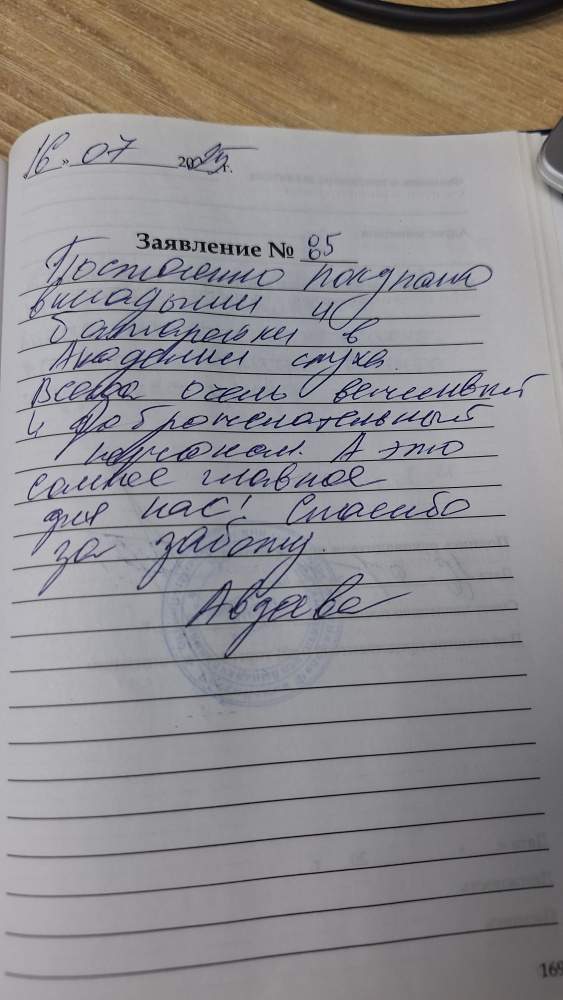 16 » 07 2025 г.
Заявление № 85
Постоянно покупаю
вкладыши и
батарейки в
Академии слуха.
Всегда очень вежливый
и доброжелательный
персонал. А это
самое главное
для нас! Спасибо
за заботу.
Авдеева
169